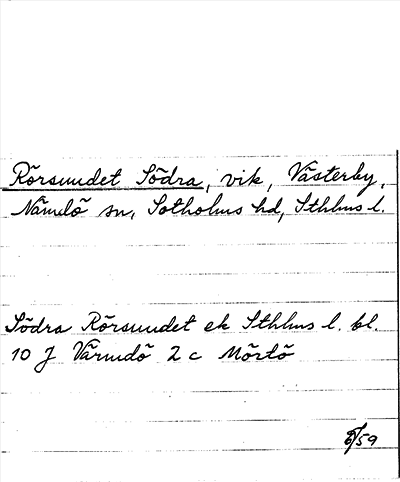 Rörsundet Södra, vik, Västerby,
Nämdö sn, Sotholms hd, Sthlms l.
Södra Rörsundet ek Sthlms l. bl.
10 J Värmdö 2 c Mörtö
/59